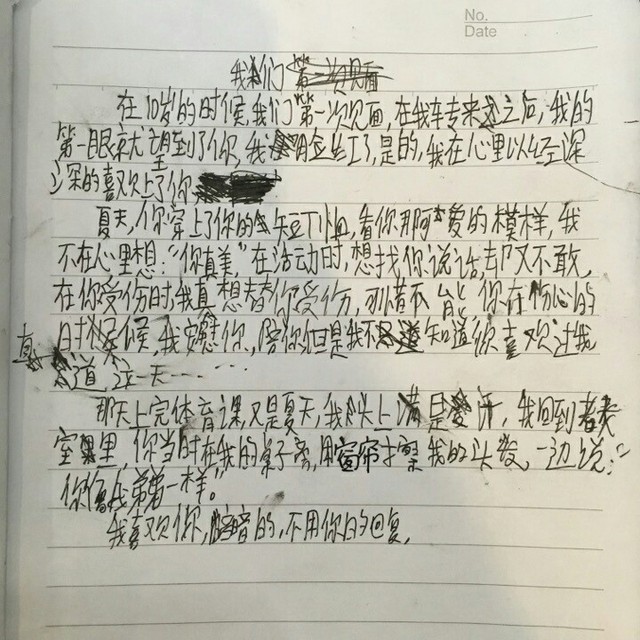 No.
Date
我们第一次见面
在10岁的时候,我们第一次见面,在我转来之后,我的
第一眼就望到了你,我脸红了,是的,我在心里以经深
深的喜欢上了你
夏天,你穿上了你的短T恤,看你那阿爱的模样,我
不在心里想:“你真美”,在活动时,想找你说话,却又不敢,
在你受伤时,我真想替你受伤,可惜不能,你在伤心的
时候,我安慰你,陪你但是我不知道你喜欢过我
直道这一天......
那天上完体育课,又是夏天,我头上满是汗,我回到教
室里,你当时在我的桌子旁,用窗帘擦我的头发,一边说:“
你像我弟弟一样。”
我喜欢你,暗的,不用你的回复,